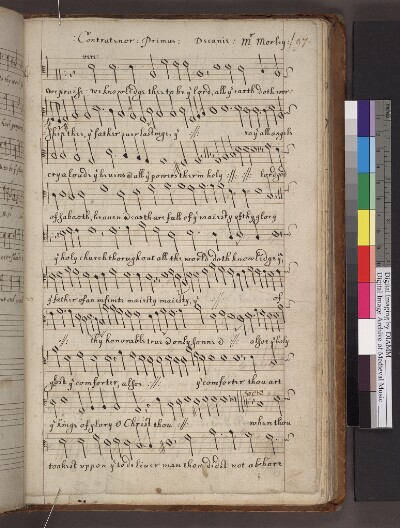 : Contratenor : Primus : Decanis : Mr Morley : 97.
we praise : we knowledge thee to be ye lord, all ye earth doth wor
ship thee, ye father everlastinge, ye :||: to ye all angels
cry aloud ye heavens & all ye powers therin holy :||: :||: lord god
of sabaoth, heaven & earth are full of ye maiesty of thy glory
ye holy church thorughout all the world doth knowledge ye
ye father of an infinite maiesty maiesty, ye :||: of
:||: thy honorable true & only sonne & :||: also ye holy
ghost ye comforter, also :||: ye comforter thou art
ye kings of glory O Christ thou :||: when thou
tookest uppon ye to deliver man thou didst not abhorre
Digital Imaging by DIAMM
Digital Image Archive of Medieval Music